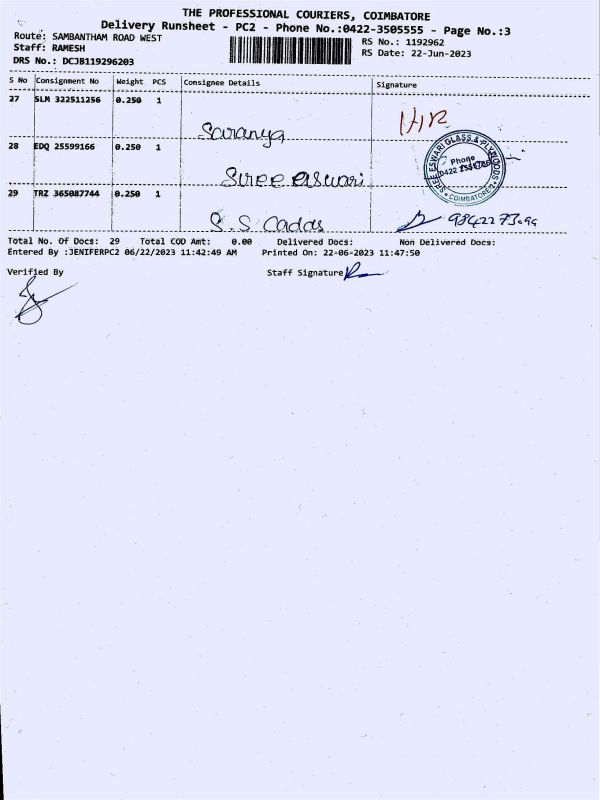 THE PROFESSIONAL COURIERS, COIMBATORE
Delivery Runsheet - PC2 - Phone No.:0422-3505555 - Page No.:3
Route: SAMBANTHAM ROAD WEST
RS No.: 1192962
Staff: RAMESH
RS Date: 22-Jun-2023
DRS No.: DCJB119296203
S No Consignment No Weight PCS Consignee Details Signature
27 SLM 322511256 0.250 1
Saranya
28 EDQ 25599166 0.250 1
Sree eswari
SREE ESWARI GLASS & PLYWOODS
Phone
0422
COIMBATORE
29 TRZ 365087744 0.250 1
S.S Cadds
Total No. Of Docs: 29 Total COD Amt: 0.00 Delivered Docs: Non Delivered Docs:
Entered By :JENIFERPC2 06/22/2023 11:42:49 AM Printed On: 22-06-2023 11:47:50
Verified By Staff Signature